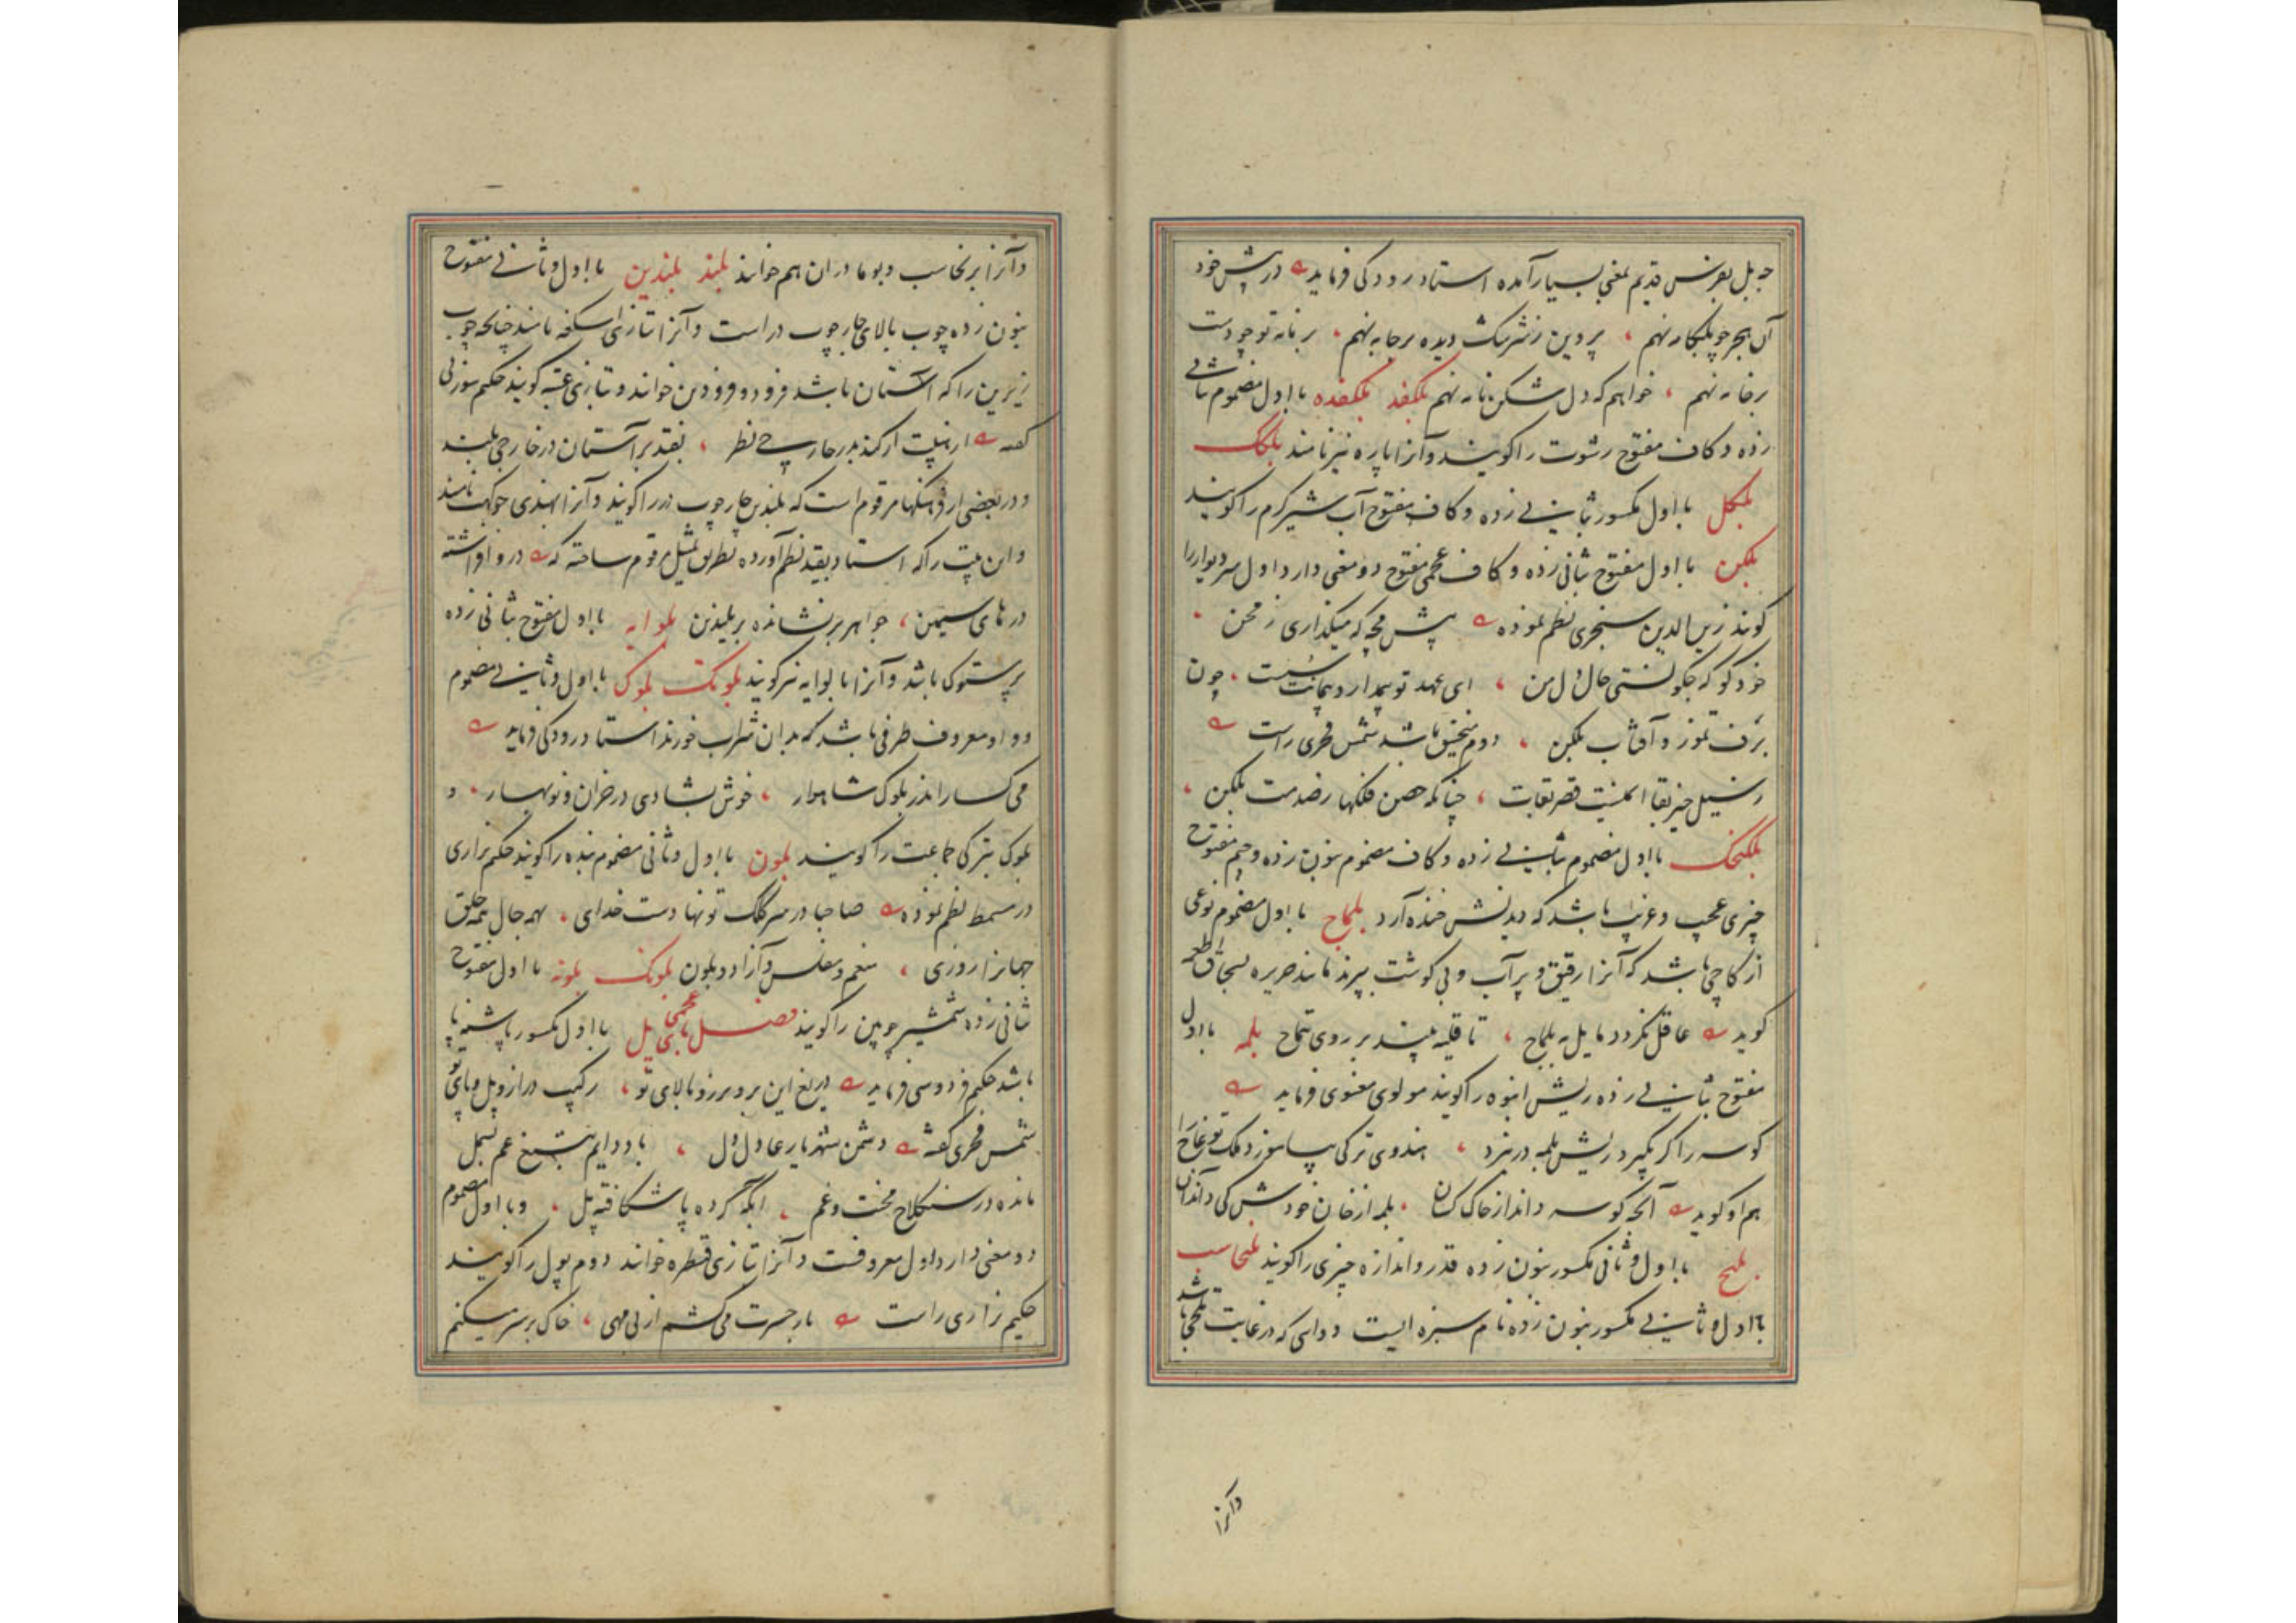 چه بل بفرس قدیم بمعنی بسیار آمده استاد رودکی فرماید در پیش خود
آن هجر چو بلکامه نهم ، پروین ز سرشک دیده بر جامه نهم ، بر نامه تو چو دست
بر خامه نهم ، خواهم که دل شکن نامه نهم بلکفد بلکفده با اول مضموم بثانی
زده و کاف مفتوح رشوت را گویند و آنرا پاره نیز نامند بلکک
بلکل با اول مکسور بثانی زده و کاف مفتوح آب شیر گرم را گویند
بلکن با اول مفتوح بثانی زده و کاف عجمی مفتوح دو معنی دارد اول سر دیوار را
گویند زین الدین سنجری نظم نموده پیش که میگذاری ز محن ،
خود گو که چگونستی حال دل من ، ای عهد تو پیمانت سست ، چون
برف تموز و آفتاب بلکن ، دوم منجنیق باشد شمس فخری راست
قصر بقات ، چنانکه حصن فلکها ز صدمت بلکن ،
بلکنجک با اول مضموم بثانی زده و کاف مضموم بنون زده و جیم مفتوح
چیزی عجیب و غریب باشد که دیدنش خنده آرد بلماج با اول مضموم نوعی
از کاچی باشد که آنرا رقیق و پر آب و بی گوشت بپزند مانند حریره بسحاق اطعمه
گوید عاقل نگردد مایل به بلماج ، تا قلیه بیند بر روی تتماج بلمه با اول
مفتوح بثانی زده ریش انبوه را گویند مولوی معنوی فرماید
کوسه را گر بگیرد ریش بلمه در نبرد ، هندوی ترکی بیاموزد ملک
هم او گوید آنچه کوسه داند از خاک کسان ، بلمه از خان خودش کی داند آن
بلنج با اول و ثانی مکسور بنون زده قدر و اندازه چیزی را گویند بلنجاسب
با اول و ثانی مکسور بنون زده نام سبزه ایست دوایی که در غایت تلخی باشد
وآنرا
وآنرا برنجاسب و بومادران هم خوانند بلند بلندین با اول و ثانی مفتوح
بنون زده چوب بالای چارچوب در است و آنرا بتازی اسکفه نامند چنانچه چوب
زیرین را که آستان باشد فرود و فرودین خوانند و بتازی عتبه گویند حکیم سوزنی
گفته نظر ، بفتد بر آستان در خارجی بلند
و در بعضی از فرهنگها مرقوم است که بلندین چارچوب در را گویند و آنرا بهندی چوکهت نامند
و این بیت را که استاد بقید نظم آورده بطریق تمثیل مرقوم ساخته که در و افراشته
درهای سیمین ، جواهر برنشانده بر بلندین بلوایه با اول مفتوح بثانی زده
پرستوک باشد و آنرا بالوایه نیز گویند بلوبک بلوک با اول و ثانی مضموم
و واو معروف ظرفی باشد که بدان شراب خورند استاد رودکی فرماید
می گسار اندر بلوک شاهوار ، خوش بشادی در خزان و نوبهار ، و
بلوک بترکی جماعت را گویند بلون با اول و ثانی مضموم بنده را گویند حکیم نزاری
در مسمط نظم نموده صاحبا در سر کلک تو نهادست خدای ، همه حال همه خلق
جهانرا روزی ، منعم و مفلس و آزاد و بلون بلونک بلونه با اول مفتوح
ثانی زده شمشیر چوبین را گویند فصل با بی عجمی پل با اول مکسور پاشنه پا
باشد حکیم فردوسی فرماید دریغ این بر و برز و بالای تو ، رکیب دراز و پل و پای تو
شمس فخری گفته دشمن شهریار عادل دل ، باد دایم بتیغ غم بسمل
مانده در سنگلاخ محنت و غم ، آبله کرده پا شکافته پل ، و با اول مضموم
دو معنی دارد اول معروفست و آنرا بتازی قنطره خوانند دوم پول را گویند
حکیم نزاری راست بار حسرت می کشم از بی مهی ، خاک بر سر میکنم